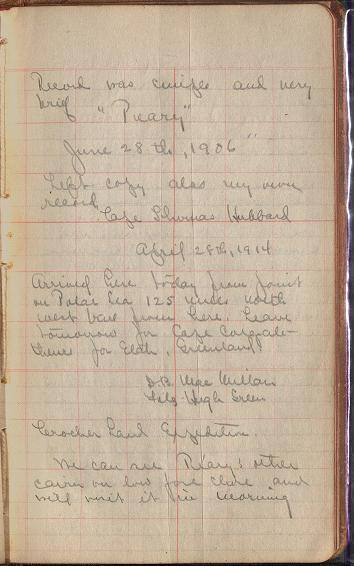 Record was simple and very
brief "Peary"
June 28th, 1906"
Left copy also my own
record
Cape Thomas Hubbard
April 28th, 1914
Arrived here today from point
on Polar Sea 125 miles north
west true from here. Leave
tomorrow for Cape Colgate
thence for Etah, Greenland.
D.B. MacMillan
Fitz Hugh Green
Crocker Land Expedition.
We can see Peary's other
cairn on low fore shore and
will visit it in morning